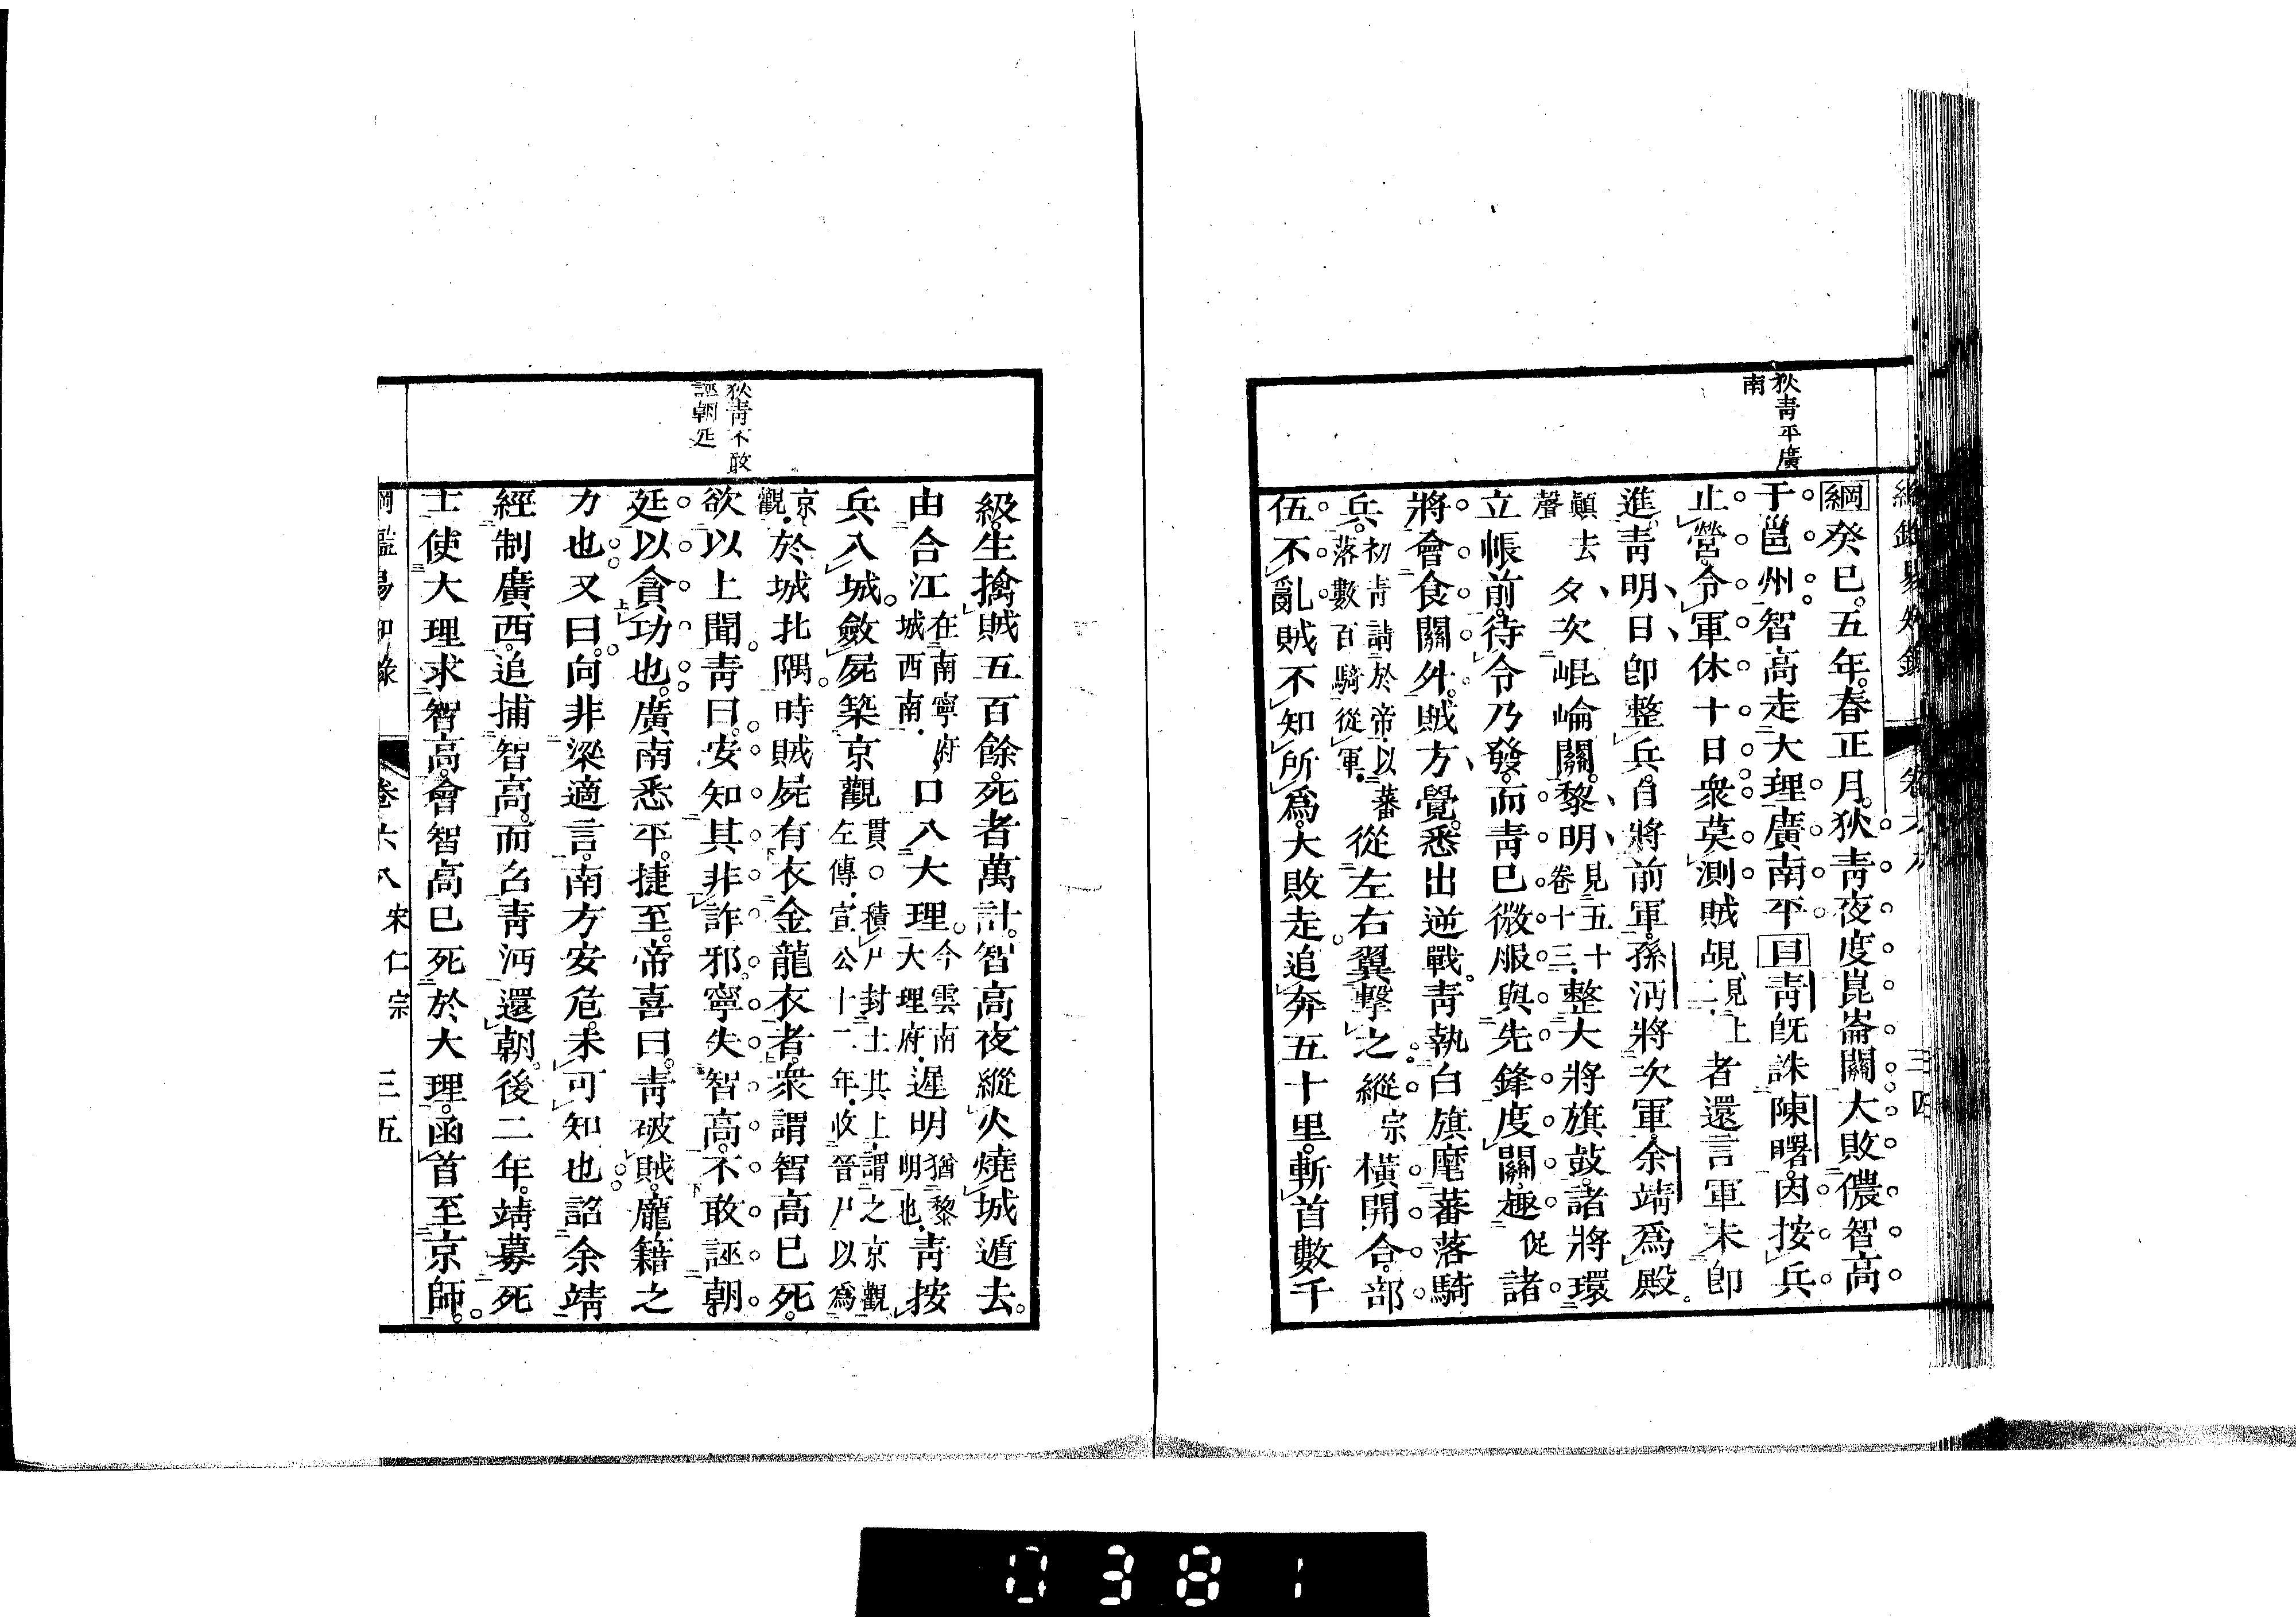 狄青平廣
南
綱癸巳。五年。春正月。狄青夜度崑崙關大敗儂智高
于邕州智高走大理廣南平目青既誅陳曙。因按兵
止營。令軍休十日衆莫測賊覘見上二者還言軍未卽
進。青明日卽整兵。自將前軍。孫沔將次軍。余靖爲殿
顚去聲夕次崐崘關。黎明見五十卷十三整大將旗鼓。諸將環
立帳前。待令乃發。而青已微服與先鋒度關。趣促諸
將會食關外。賊方覺。悉出逆戰。青執白旗麾蕃落騎
兵。初青請於帝以蕃落數百騎從軍從左右翼擊之縱宗橫開合。部
伍不亂賊不知所爲。大敗走。追奔五十里。斬首數千
綱鑑易知錄 卷六八 宋仁宗 三五
狄青不敢
誣朝廷
級。生擒賊五百餘。死者萬計。智高夜縱火燒城遁去。
由合江在南寧府城西南口入大理。今雲南大理府遲明猶黎明也青按
兵入城。斂屍築京觀貫○積尸封土其上謂之京觀左傳宣公十二年收晉尸以爲
京觀於城北隅。時賊屍有衣金龍衣者。衆謂智高已死。
欲以上聞。青曰。安知其非詐邪。寧失智高。不敢誣朝
廷以貪功也。廣南悉平。捷至。帝喜曰。青破賊。龐籍之
力也。又曰。向非梁適言。南方安危。未可知也詔余靖
經制廣西。追捕智高。而召青沔還朝。後二年。靖募死
士使大理求智高。會智高已死於大理。函首至京師。
0381